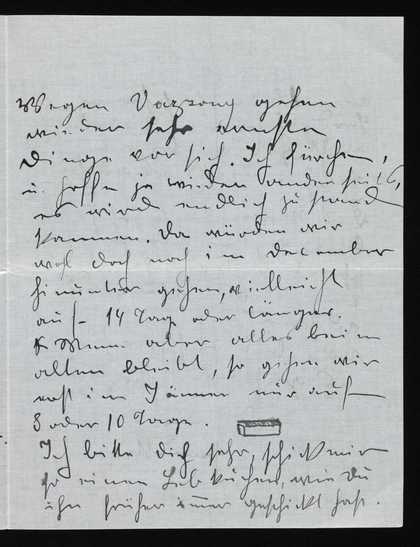 Wegen Vazsony gehen
wieder sehr ernste
Dinge vor sich. Ich fürchte,
u. hoffe ja wieder anderseits,
es wird endlich zu stand
kommen. Da würden wir
wohl doch noch im december
hinunter gehen, vielleicht
auf 14 Tage oder länger.
Wenn aber alles beim
alten bleibt, so gehen wir
erst im Jänner nur auf
8 oder 10 Tage.
Ich bitte dich sehr, schick mir
so einen Lebkuchen, wie Du
ihn früher immer geschickt hast.